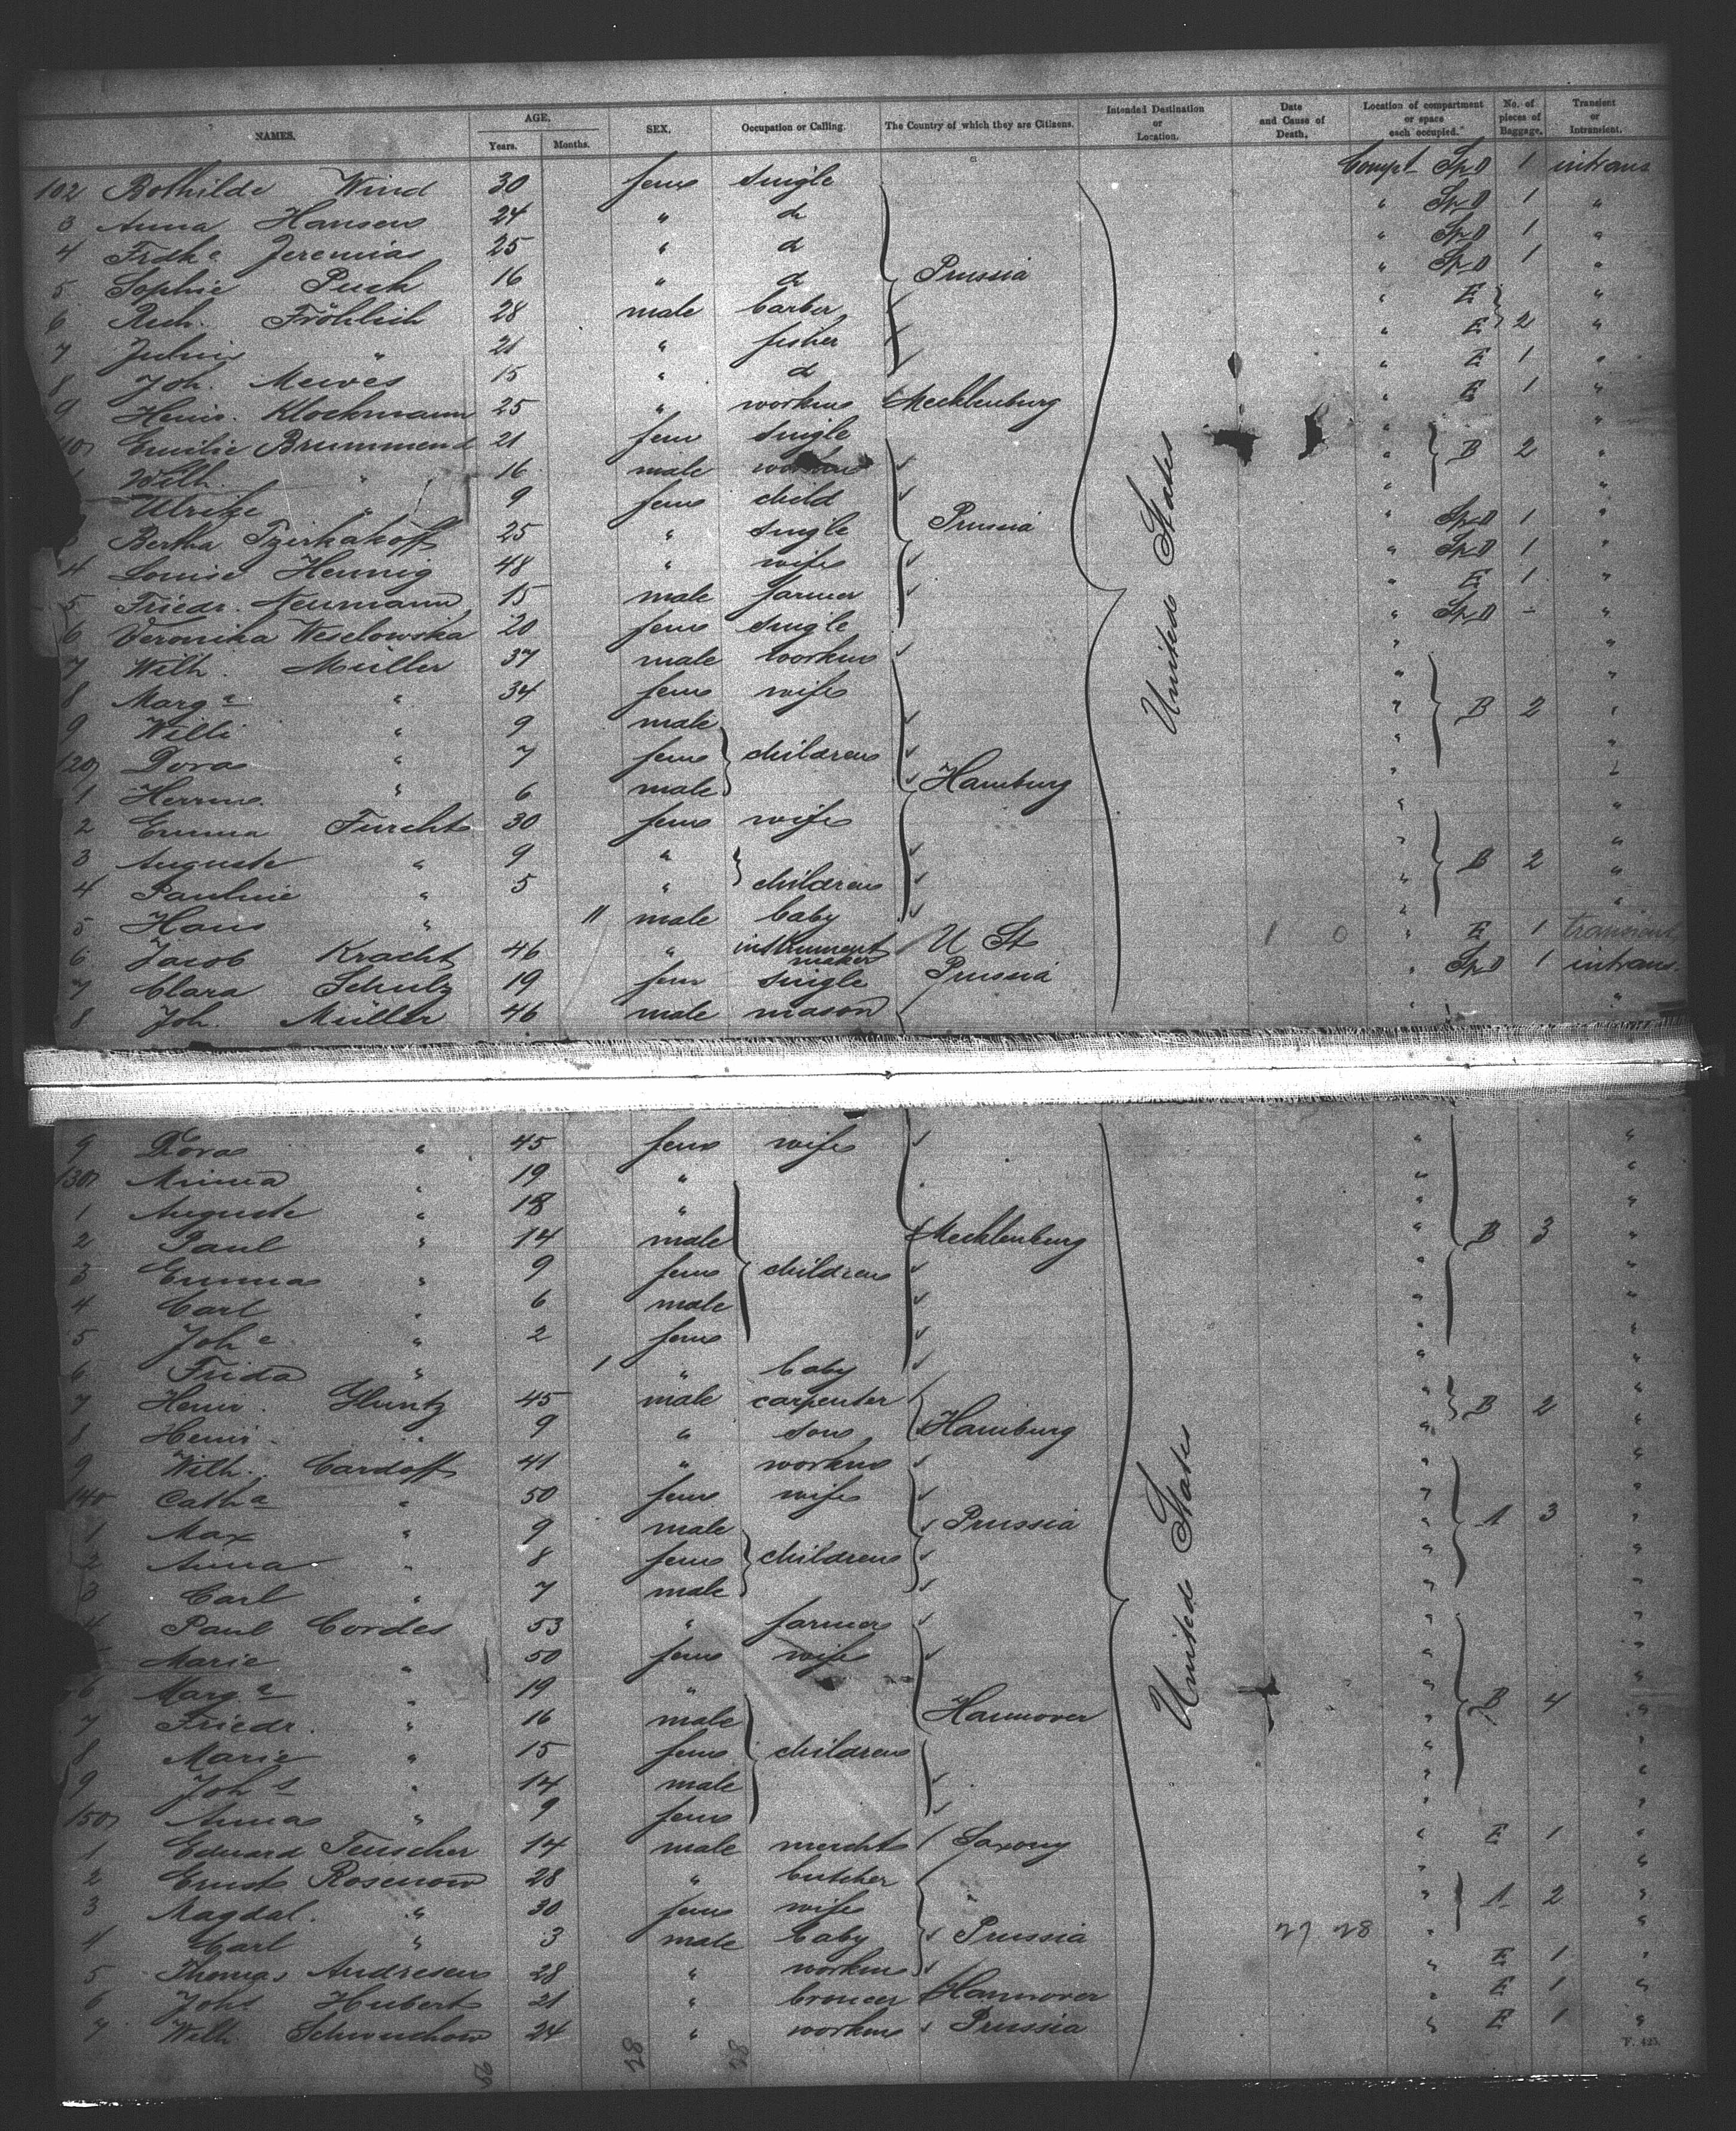 NAMES. AGE, Years. Months. SEX, Occupation or Calling. The Country of which they are Citizens. Intended Destination or Location. Date and Cause of Death. Location of compartment or space each occupied. No. of pieces of Baggage. Transient or Intransient.
102 Bothilde Wind 30 fem single Compt Sp.D 1 intrans
3 Anna Hansen 24 " d " Sp.D 1 "
4 Frdke Jeremias 25 " d " Sp.D 1 "
5 Sophie Puck 16 " d Prussia " Sp.D 1 "
6 Rich. Fröhlich 28 male barber " E "
7 Julius " 21 " fisher " E 2 "
8 Joh. Mewes 15 " d " E 1 "
9 Heinr. Klockmann 25 " workm Mecklenburg " E 1 "
110 Emilie Brummend 21 fem single " "
Wilh. " 16 male workm " B 2 "
Ulrike " 9 fem child " "
3 Bertha 25 " single Prussia " Sp.D 1 "
4 Louise Hennig 48 " wife " Sp.D 1 "
5 Friedr. Neumann 15 male farmer " E 1 "
6 Veronika Weselowska 20 fem single " Sp.D - "
7 Wilh. Müller 37 male workm " "
8 Marga " 34 fem wife " "
9 Willi " 9 male United States " B 2 "
120 Dora " 7 fem children " "
1 Herm. " 6 male Hamburg " "
2 Emma Furcht 30 fem wife " "
3 Auguste " 9 " " B 2 "
4 Pauline " 5 " children " "
5 Hans " 11 male baby " "
6 Jacob Kracht 46 " instrument maker U St 1 0 " E 1 transient
7 Clara Schulz 19 fem single Prussia " Sp.D 1 intrans.
8 Joh. Müller 46 male mason " "
9 Dora " 45 fem wife " "
130 Minna " 19 " " "
1 Auguste " 18 " " "
2 Paul " 14 male Mecklenburg " B 3 "
3 Emma " 9 fem children " "
4 Carl " 6 male " "
5 Johe. " 2 fem " "
6 Frida " 1 " baby " "
7 Heinr. Gluntz 45 male carpenter " B 2 "
8 Heinr. " 9 " son Hamburg " "
9 Wilh. Cardoff 41 " workm " "
140 Catha " 50 fem wife " "
1 Max " 9 male Prussia " A 3 "
2 Anna " 8 fem children " "
3 Carl " 7 male " "
4 Paul Cordes 53 " farmer United States " "
Marie " 50 fem wife " "
6 Marga " 19 " " "
7 Friedr. " 16 male Hannover " B 4 "
8 Marie " 15 fem children " "
9 Johs " 14 male " "
150 Anna " 9 fem " "
1 Eduard Teuscher 14 male mercht Saxony " E 1 "
2 Ernst Rosenow 28 " butcher " "
3 Magdal. " 30 fem wife " A 2 "
4 Carl " 3 male baby Prussia 27 28 " "
5 Thomas Andresen 28 " workm " E 1 "
6 Johs Hubert 21 " Hannover " E 1 "
7 Wilh. Schwuchow 24 " workm Prussia " E 1 "
28 28
F. 425.